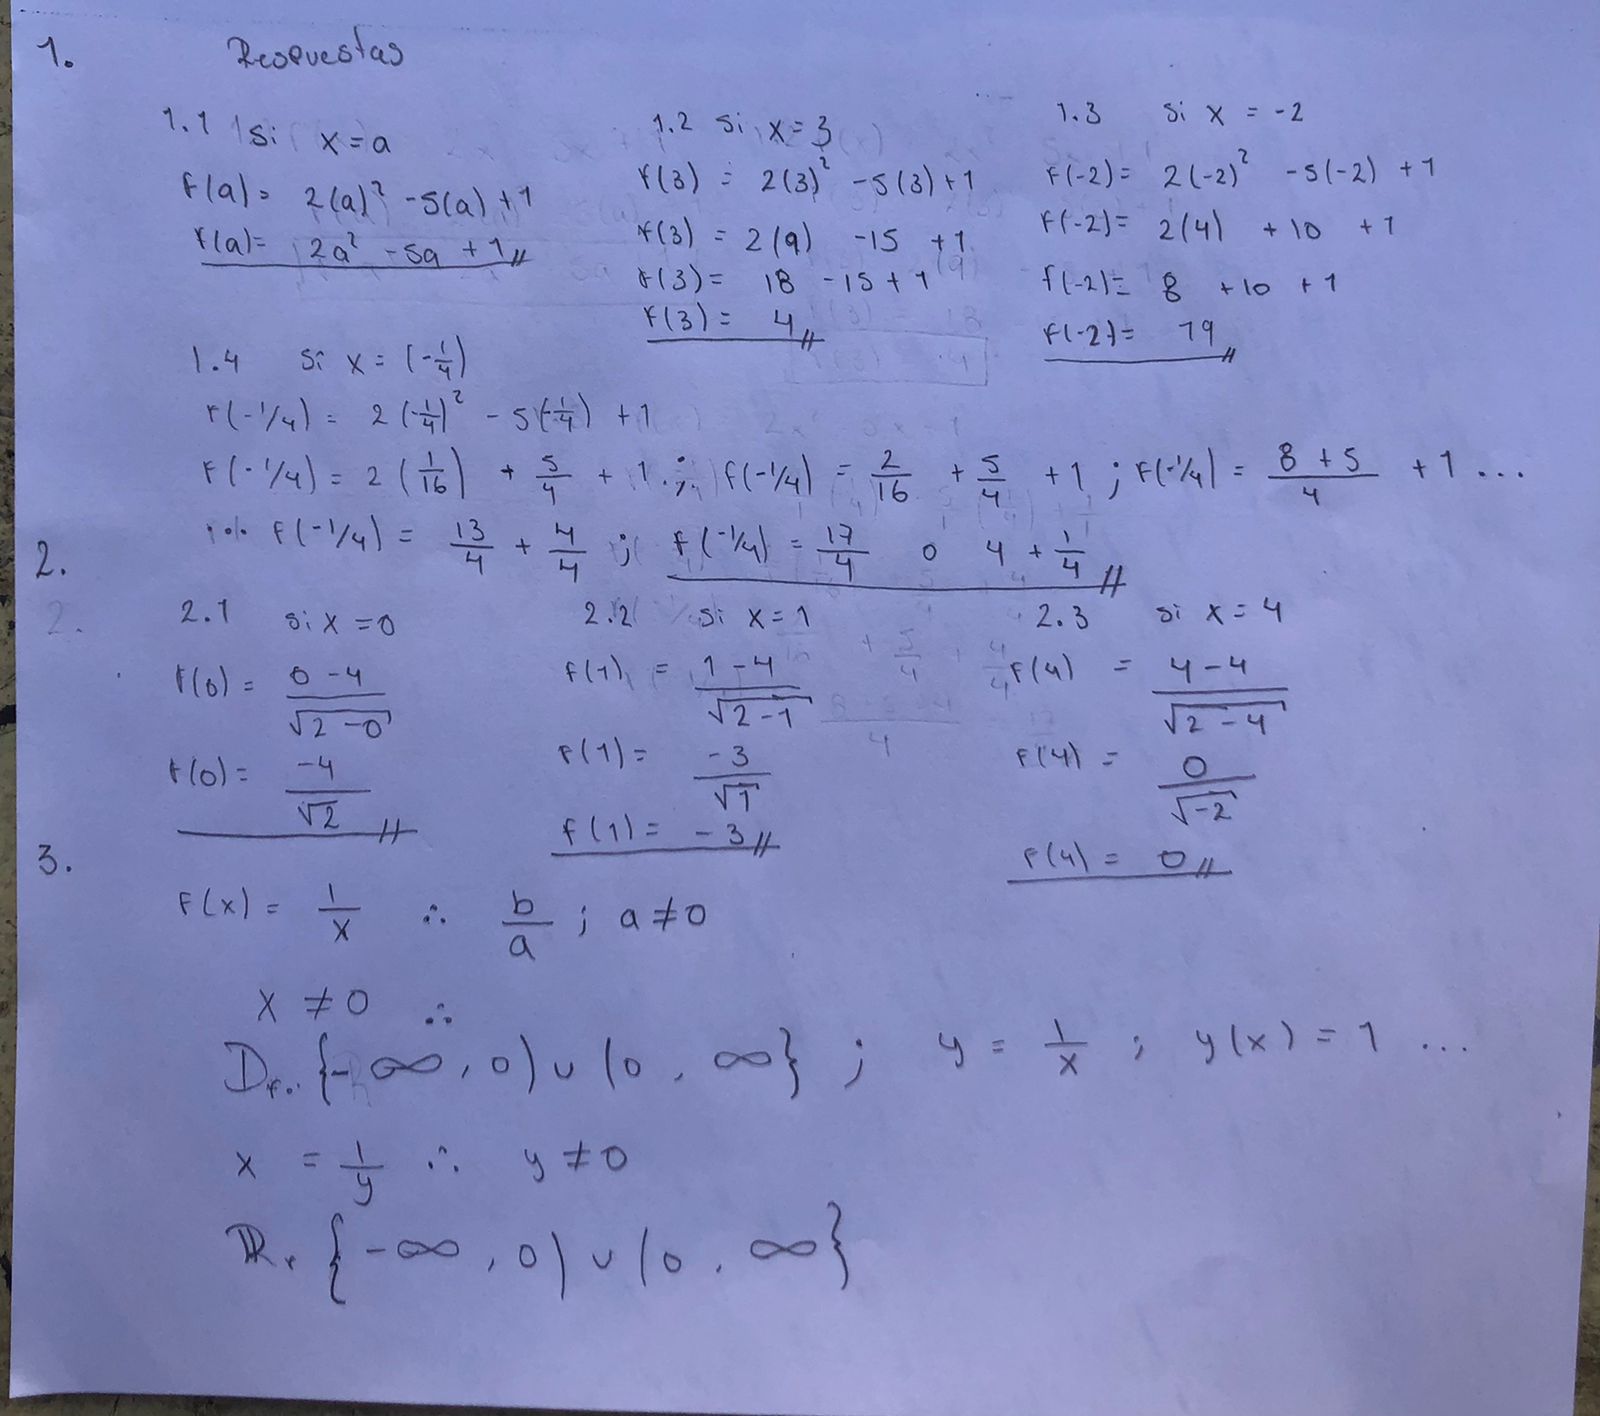 1. Respuestas
1.1 si x=a
f(a)= 2(a)² -5(a)+1
f(a)= 2a² -5a +1
1.2 si x=3
f(3) = 2(3)² -5(3)+1
f(3) = 2(9) -15 +1
f(3)= 18 -15+1
f(3)= 4
1.3 si x = -2
f(-2)= 2(-2)² -5(-2) +1
f(-2)= 2(4) +10 +1
f(-2)= 8 +10 +1
f(-2)= 19
1.4 si x = (-1/4)
f(-1/4)= 2(-1/4)² - 5(-1/4) +1
f(-1/4)= 2(1/16) + 5/4 + 1 ; f(-1/4) = 2/16 + 5/4 +1 ; f(-1/4)= (8+5)/4 +1 ...
... f(-1/4)= 13/4 + 4/4 ; f(-1/4) = 17/4 o 4 + 1/4
2.
2.1 si x=0
f(0)= (0-4)/√(2-0)
f(0)= -4/√2
2.2 si x=1
f(1) = (1-4)/√(2-1)
f(1)= -3/√1
f(1)= -3
2.3 si x=4
f(4) = (4-4)/√(2-4)
f(4) = 0/√-2
f(4) = 0
3.
f(x)= 1/x ∴ b/a ; a≠0
x ≠0 ∴
Df. {-∞,0)∪(0,∞} ; y = 1/x ; y(x)=1 ...
x = 1/y ∴ y≠0
R. {-∞,0)∪(0,∞}